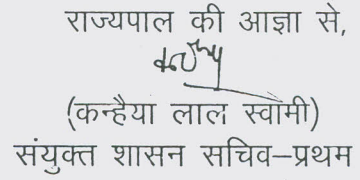 राज्यपाल की आज्ञा से,
(कन्हैया लाल स्वामी)
संयुक्त शासन सचिव–प्रथम